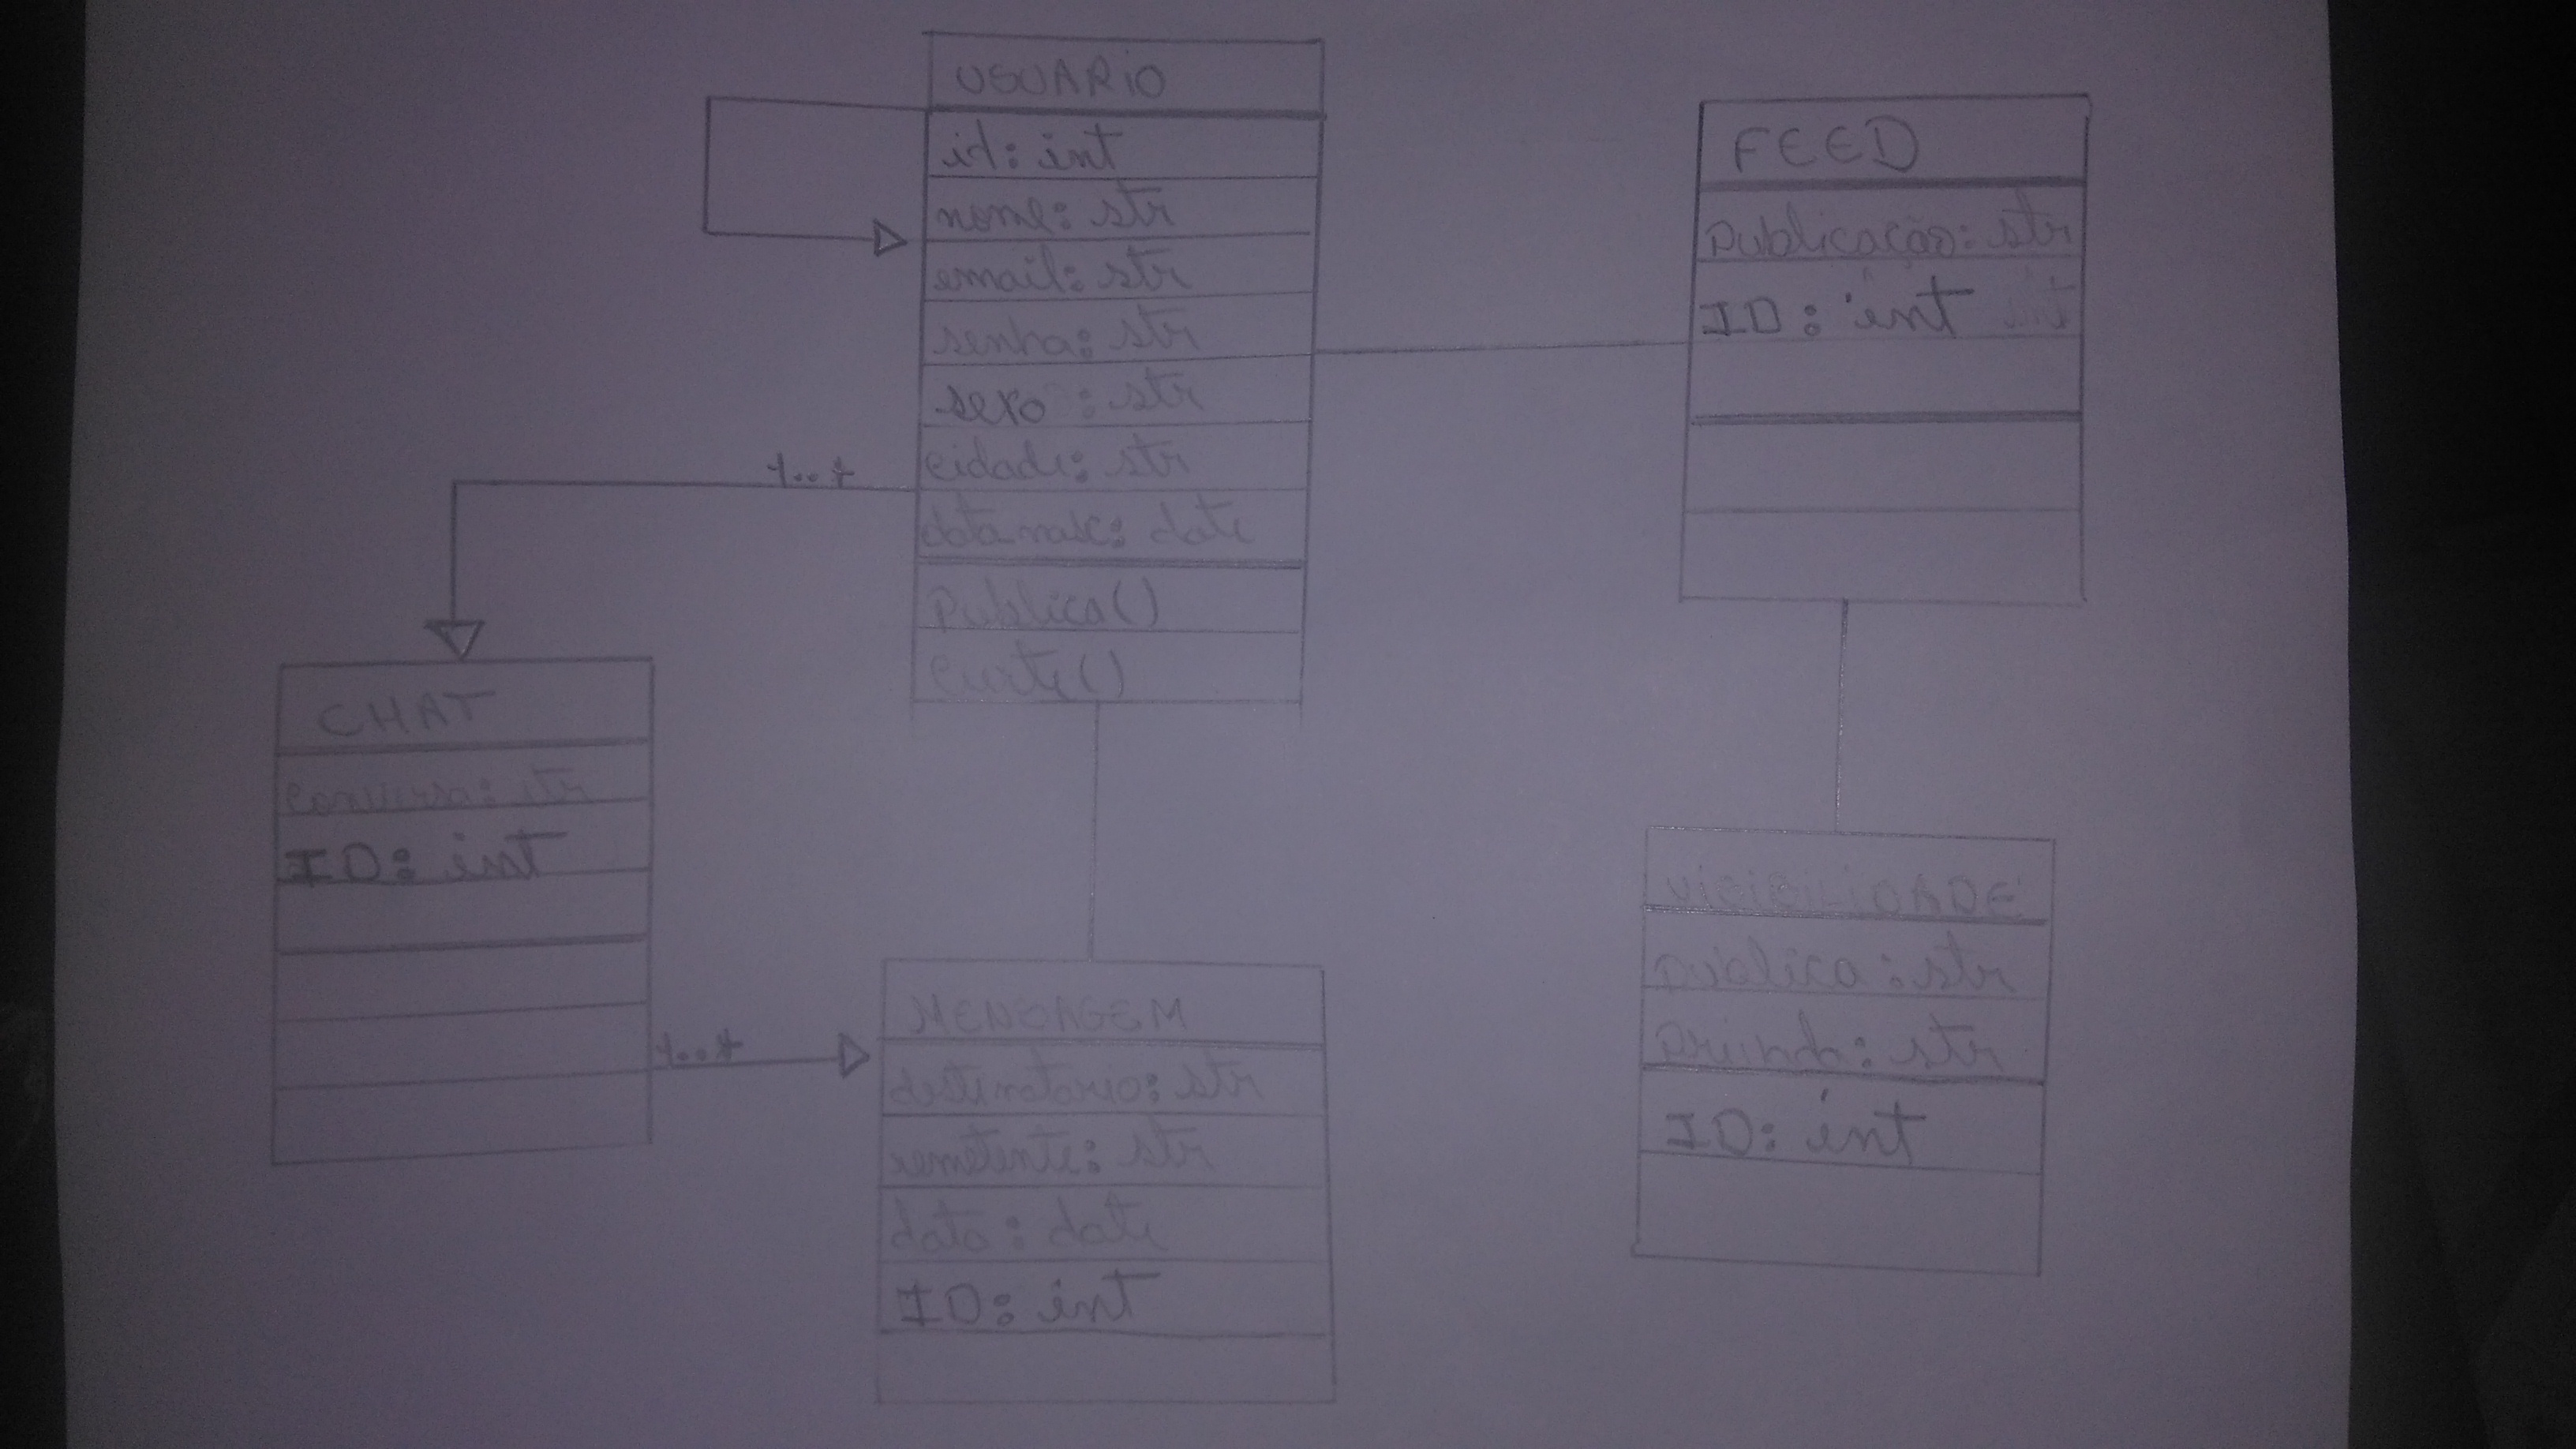 USUARIO
id: int
nome: str
email: str
senha: str
sexo : str
cidade: str
data nasc: date
publica()
curte()
FEED
publicação: str
ID: int int
1..*
CHAT
conversa: str
ID: int
1..*
MENSAGEM
destinatario: str
remetente: str
data: date
ID: int
VICIBILIDADE
publica: str
str
ID: int